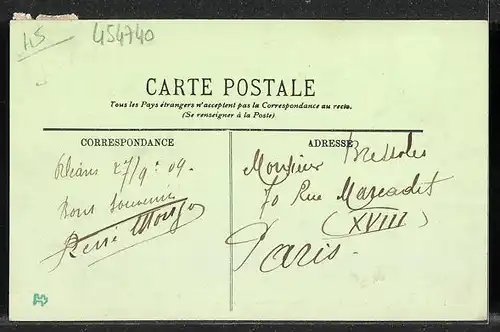 45
454740
CARTE POSTALE
Tous les Pays étrangers n'acceptent pas la Correspondance au recto.
(Se renseigner à la Poste)
CORRESPONDANCE
Orléans 27/9. 09.
Bons souvenirs
René
ADRESSE
Monsieur
70 Rue Marcadet
(XVIII)
Paris.